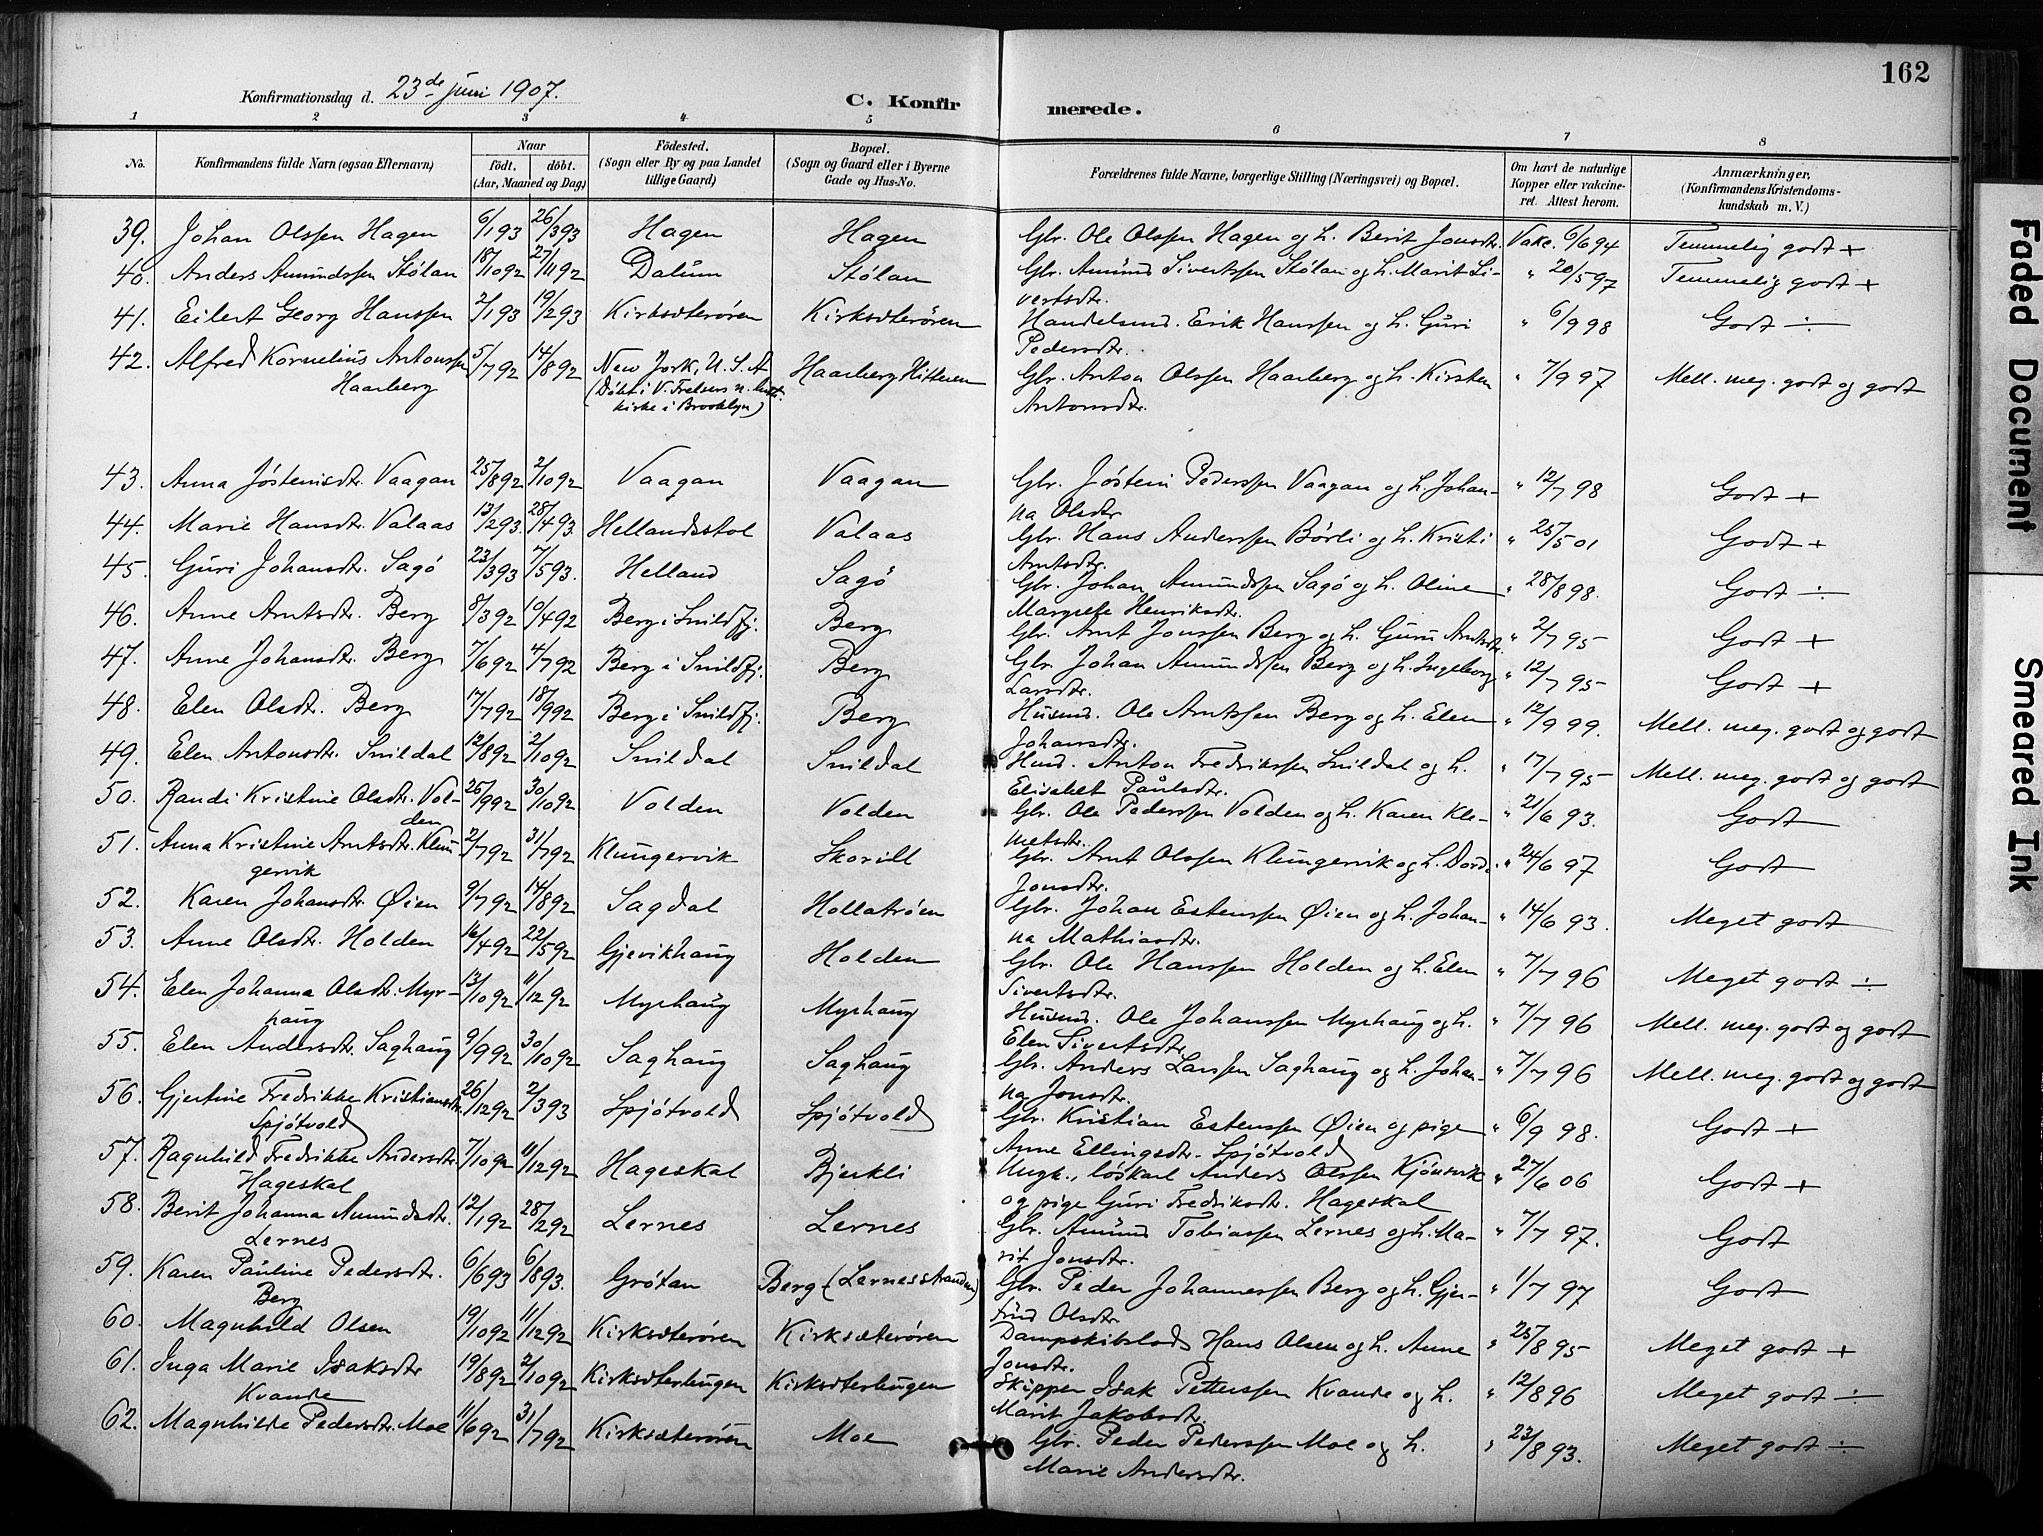 162
Konfirmationsdag d. 23de juni 1907.
C. Konfirmerede.
1 2 3 4 5 6 7 8
No. Konfirmandens fulde Navn (ogsaa Efternavn). Naar födt. döbt. (Aar, Maaned og Dag) Födested. (Sogn eller By og paa Landet tillige Gaard) Bopæl. (Sogn og Gaard eller i Byerne Gade og Hus-No. Forældrenes fulde Navne, borgerlige Stilling (Næringsvei) og Bopæl. Om havt de naturlige Kopper eller vakcineret. Attest herom. Anmærkninger. (Konfirmandens Kristendomskundskab m. V.)
39. Johan Olssen Hagen 6/1 93 26/3 93 Hagen Hagen Gbr. Ole Olssen Hagen og h. Berit Jonsdtr. Vakc. 6/6 94 Temmelig godt +
40. Anders Amundssen Stølan 18/10 92 27/11 92 Dalum Stølan Gbr. Amund Sivertssen Stølan og h. Marit Sivertsdtr. " 20/5 97 Temmelig godt +
41. Eilert Georg Hanssen 2/1 93 19/2 93 Kirksæterøren Kirksæterøren Handelsmd. Erik Hanssen og h. Guri Pedersdtr. " 6/9 98 Godt ÷
42. Alfred Kornelius Antonssen Haarberg 5/7 92 14/8 92 New Jork, U.S.A (Döbt i V. Frelsers n. luth. kirke i Brooklyn) Haarberg Hitteren Gbr. Anton Olssen Haarberg og h. Kirsten Antonsdtr. " 7/9 97 Mell. meg. godt og godt
43. Anna Jøstensdtr. Vaagan 25/8 92 2/10 92 Vaagan Vaagan Gbr. Jøsten Pederssen Vaagan og h. Johanna Olsdtr " 12/7 98 Godt +
44. Marie Hansdtr. Valaas 13/2 93. 28/4 93. Hellandsstol Valaas Gbr. Hans Anderssen Børli og h. Kristi Arntsdtr. " 25/5 01 Godt +
45. Guri Johansdtr. Sagö 23/3 93 7/5 93. Helland Sagö Gbr. Johan Amundssen Sagö og h. Oline Margrete Henriksdtr. " 28/8 98. Godt ÷
46. Anne Arntsdtr. Berg 8/3 92 10/4 92 Berg i Snildfj. Berg Gbr. Arnt Jonssen Berg og h. Guru Arntsdtr. " 2/7 95 Godt +
47. Anne Johansdtr. Berg 7/6 92 4/7 92 Berg i Snildfj. Berg Gbr. Johan Amundssen Berg og h. Ingeborg Larsdtr. " 12/7 95 Godt +
48. Elen Olsdtr. Berg 17/7 92 18/9 92 Berg i Snildfj. Berg Husmd. Ole Arntssen Berg og h. Elen Johansdtr. " 12/9 99. Mell. meg. godt og godt
49. Elen Antonsdtr. Snildal 12/8 92 2/10 92 Snildal Snildal Husd. Anton Fredrikssen Snildal og h. Elisabet Paulsdtr. " 17/7 95 Mell. meg. godt og godt
50. Randi Kristine Olsdtr. Volden 26/9 92 30/10 92 Volden Volden Gbr. Ole Pederssen Volden og h. Karen Klemetsdtr. " 21/6 93. Godt
51. Anna Kristine Arntsdtr. Klungervik 2/7 92 31/7 92 Klungervik Skorild Gbr. Arnt Olssen Klungervik og h. Dordi Jonsdtr. " 24/6 97 Godt
52. Karen Johansdtr. Øien 9/7 92 14/8 92 Sagdal Hollatrøen Gbr. Johan Estenssen Øien og h. Johanna Mathiasdtr. " 14/6 93. Meget godt
53. Anne Olsdtr. Holden 16/4 92 22/5 92 Gjevikhaug Holden Gbr. Ole Hanssen Holden og h. Elen Sivertsdtr. " 7/7 96 Meget godt ÷
54. Elen Johanna Olsdtr. Myrhaug 13/10 92 11/12 92 Myrhaug Myrhaug Husmd. Ole Johanssen Myrhaug og h. Elen Sivertsdtr. " 7/7 96 Mell. meg. godt og godt
55. Elen Andersdtr. Saghaug 9/9 92 30/10 92 Saghaug Saghaug Gbr. Anders Larssen Saghaug og h. Johanna Jonsdtr. " 7/7 96 Mell. meg. godt og godt
56. Gjertine Fredrikke Kristiansdtr. Spjøtvold 26/12 92 2/3 93 Spjøtvold Spjøtvold Gbr. Kristian Estenssen Øien og pige Anne Ellingsdtr. Spjøtvold " 6/9 98. Godt +
57. Ragnhild Fredrikke Andersdtr. Hageskal 7/10 92 11/12 92 Hageskal Bjerkli Ungk., løskarl Anders Olssen Kjönsvik og pige Guri Fredriksdtr. Hageskal " 27/6 06 Godt +
58. Berit Johanna Amundsdtr. Lernes 12/1 92 28/2 92 Lernes Lernes Gbr. Amund Tobiassen Lernes og h. Marit Jonsdtr. " 7/7 97. Godt
59. Karen Pauline Pedersdtr. Berg 6/6 93 6/8 93. Grötan Berg (Lernesstranden) Gbr. Peder Johannessen Berg og h. Gjertrud Olsdtr " 1/7 97 Godt
60. Magnhild Olsen 19/10 92 11/12 92 Kirksæterøren Kirksæterøren Dampskibslods Hans Olsen og h. Anne Jonsdtr. " 25/8 95 Meget godt +
61. Inga Marie Isaksdtr Kvande 19/8 92 2/10 92 Kirksæterhugen Kirksæterhugen Skipper Isak Petterssen Kvande og h. Marit Jakobsdtr. " 12/8 96 Meget godt ÷
62. Magnhilde Pedersdtr. Moe 11/6 92 31/7 92 Kirksæterøren Moe Gbr. Peder Pederssen Moe og h. Marie Andersdtr. " 23/8 93. Meget godt ÷
Faded Document
Smeared Ink